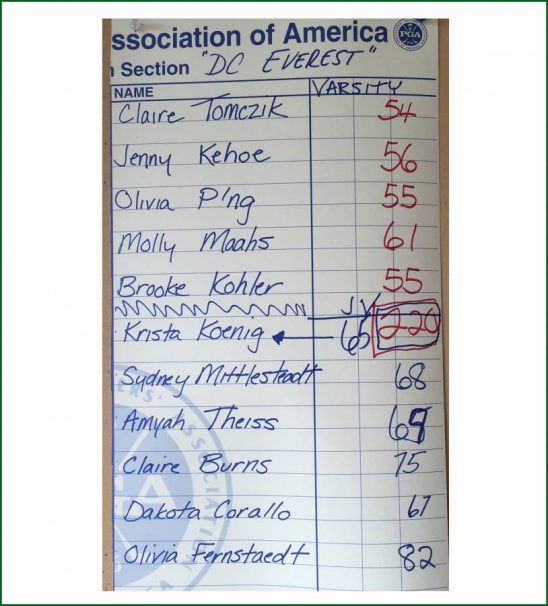 ssociation of America
PGA
n Section "DC EVEREST"
NAME VARSITY
Claire Tomczik 54
Jenny Kehoe 56
Olivia P'ng 55
Molly Maahs 61
Brooke Kohler 55
J.V. 220
Krista Koenig 65
Sydney Mittlesteadt 68
Amyah Theiss
Claire Burns 75
Dakota Corallo 67
Olivia Fernstaedt 82